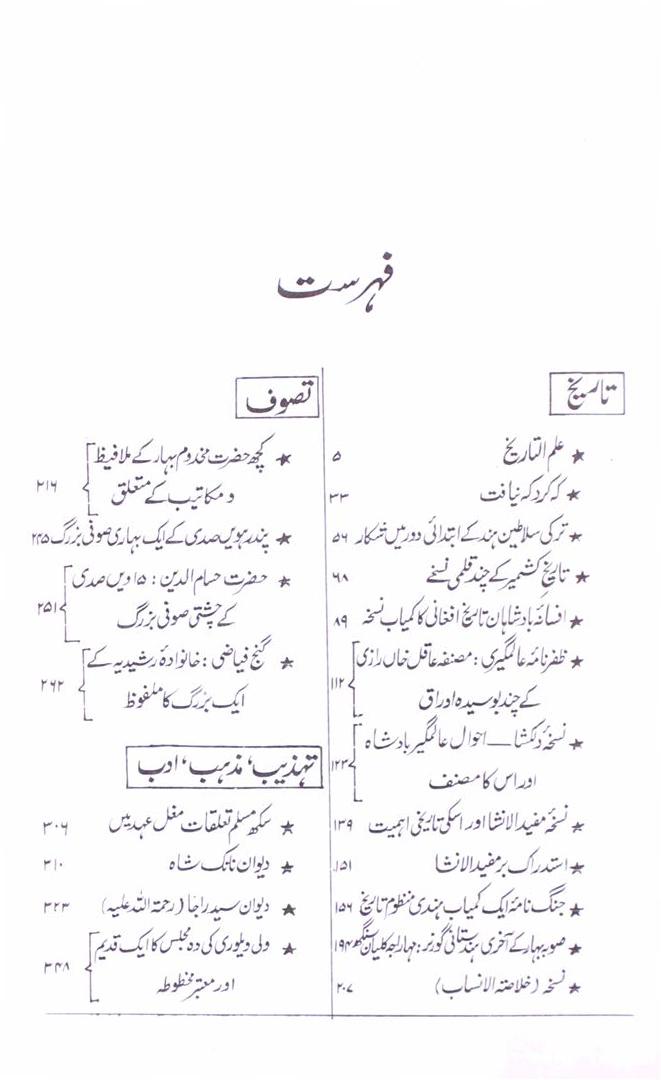 فہرست
تاریخ
★ علم التاریخ ۵
★ کہ کرد کہ نیافت ۳۳
★ ترکی سلاطین ہند کے ابتدائی دور میں شکار ۵۶
★ تاریخ کشمیر کے چند قلمی نسخے ۶۸
★ افسانۂ بادشاہان تاریخ افغانی کا کمیاب نسخہ ۸۹
★ ظفر نامۂ عالمگیری : مصنفہ عاقل خاں رازی
کے چند بوسیدہ اوراق ۱۱۲
★ نسخۂ دلکشا — احوال عالمگیر بادشاہ
اور اس کا مصنف ۱۲۳
★ نسخۂ مفید الانشا اور اسکی تاریخی اہمیت ۱۳۹
★ استدراک بر مفید الانشا ۱۵۱
★ جنگ نامۂ ایک کمیاب ہندی منظوم تاریخ ۱۵۶
★ صوبہ بہار کے آخری ہندستانی گورنر : مہاراجہ کلیان سنگھ ۱۹۴
★ نسخہ (خلاصتہ الانساب) ۲۰۷
تصوف
★ کچھ حضرت مخدوم بہار کے ملافیظ
و مکاتیب کے متعلق ۲۱۶
★ پندرہویں صدی کے ایک بہاری صوفی بزرگ ۲۴۵
★ حضرت حسام الدین : ۱۵ ویں صدی
کے چشتی صوفی بزرگ ۲۵۱
★ گنج فیاضی : خانوادۂ رشیدیہ کے
ایک بزرگ کا ملفوظ ۲۶۲
تہذیب، مذہب، ادب
★ سکھ مسلم تعلقات مغل عہد میں ۳۰۶
★ دیوان نانک شاہ ۳۱۰
★ دیوان سید راجا (رحمتہ اللہ علیہ) ۳۲۳
★ ولی ویلوری کی دہ مجلس کا ایک قدیم
اور معتبر مخطوطہ ۳۴۸